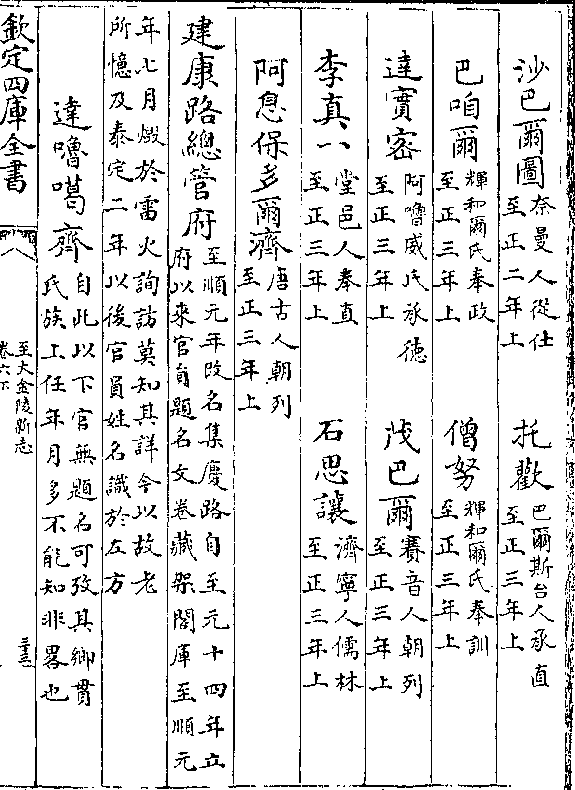 沙巴爾圖 奈曼人從仕至正二年上 托歡 巴爾斯台人承直至正三年上
巴咱爾 輝和爾氏奉政至正三年上 僧努 輝和爾氏奉訓至正三年上
達實密 阿嚕威氏承德至正三年上 茂巴爾 賽音人朝列至正三年上
李真一 堂邑人奉直至正三年上 石思讓 濟寧人儒林至正三年上
阿息保多爾濟 唐古人朝列至正三年上
建康路總管府 至順元年改名集慶路自至元十四年立府以來官員題名文卷藏架閣庫至順元
年七月燬於雷火詢訪莫知其詳今以故老所憶及泰定二年以後官員姓名識於左方
達嚕噶齊 自此以下官無題名可攷其鄉貫氏族上任年月多不能知非畧也
欽定四庫全書
至大金陵新志
卷六下
三十三